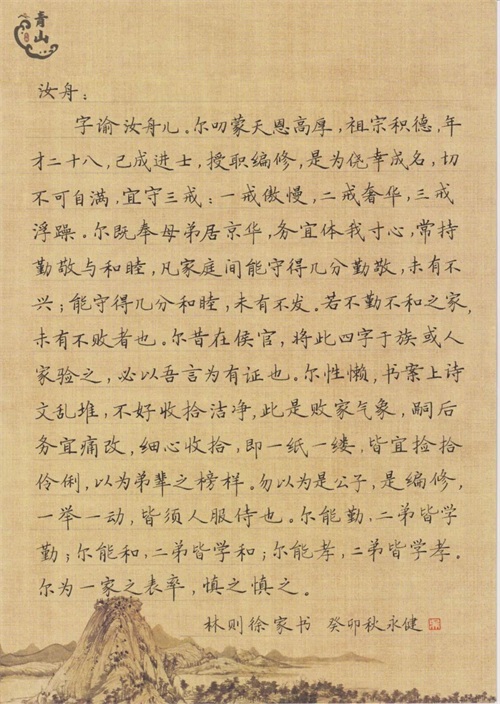 青山
汝舟：
字谕汝舟儿。尔叨蒙天恩高厚，祖宗积德，年
才二十八，已成进士，授职编修，是为侥幸成名，切
不可自满，宜守三戒：一戒傲慢，二戒奢华，三戒
浮躁。尔既奉母弟居京华，务宜体我寸心，常持
勤敬与和睦，凡家庭间能守得几分勤敬，未有不
兴；能守得几分和睦，未有不发。若不勤不和之家，
未有不败者也。尔昔在侯官，将此四字于族或人
家验之，必以吾言为有证也。尔性懒，书案上诗
文乱堆，不好收拾洁净，此是败家气象，嗣后
务宜痛改，细心收拾，即一纸一缕，皆宜捡拾
伶俐，以为弟辈之榜样。勿以为是公子，是编修，
一举一动，皆须人服侍也。尔能勤，二弟皆学
勤；尔能和，二弟皆学和；尔能孝，二弟皆学孝。
尔为一家之表率，慎之慎之。
林则徐家书 癸卯秋永健